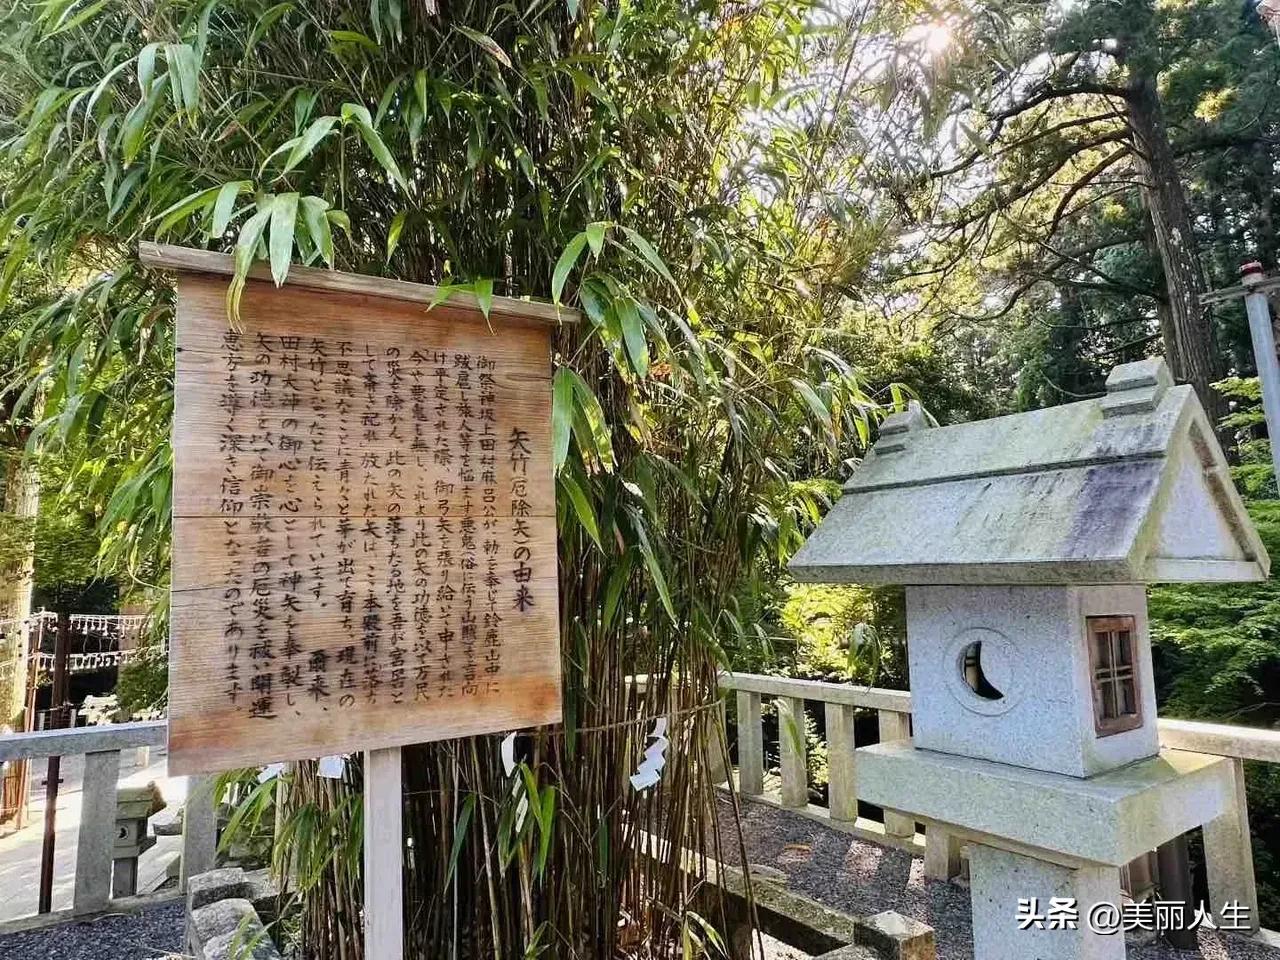 矢竹厄除矢の由来
御祭神坂上田村麻呂公が、勅を奉じて鈴鹿山中に
跋扈し旅人等を悩ます悪鬼(俗に伝う山賊)を言向
け平定された際、御弓矢を張り給いて申された
「今や悪鬼も無し、これより此の矢の功徳を以て万民
の災を除かん。此の矢の落ちたる地を吾が宮居と
して斎き祀れ」放たれた矢は、ここ本殿前に落ち
不思議なことに青々と葉が出て育ち、現在の
矢竹となったと伝えられています。爾来、
田村大神の御心を心として神矢を奉製し、
矢の功徳を以て御崇敬者の厄災を祓い開運
恵方を導く深き信仰となったのであります
头条 @美丽人生